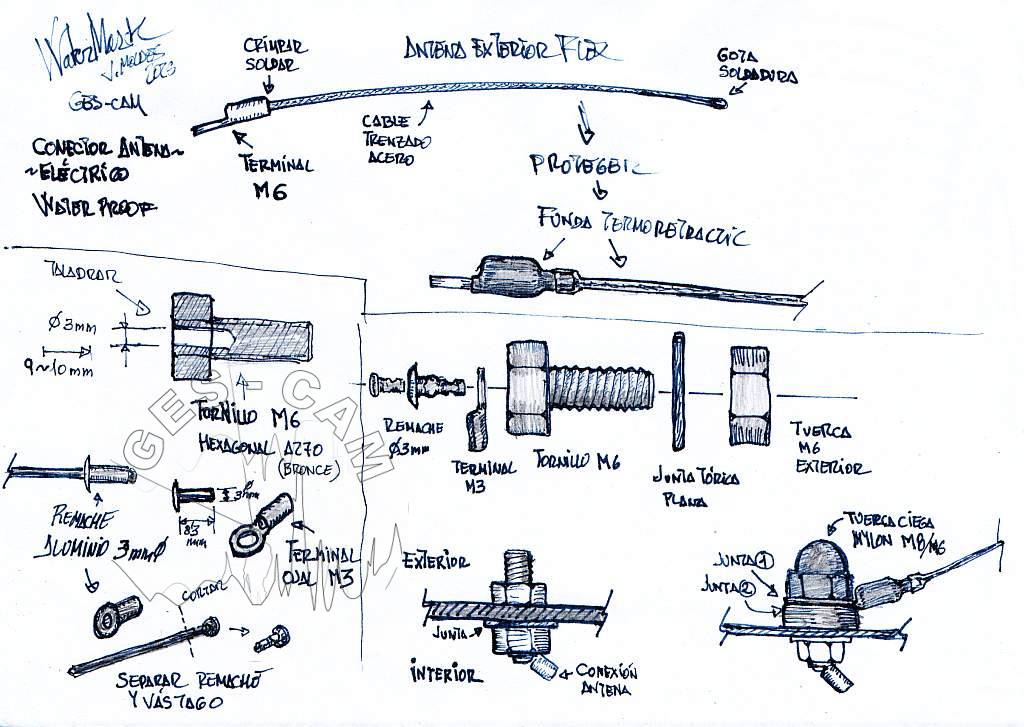 WaterMark
J. MELDES
2003
GES-CAM
CONECTOR ANTENA~
~ELÉCTRICO
WATER PROOF
CRIMPAR
SOLDAR
ANTENA EXTERIOR FLEX
GOTA
SOLDADURA
CABLE
TRENZADO
ACERO
TERMINAL
M6
PROTEGER
FUNDA TERMORETRACTIL
TALADRAR
Ø3mm
9~10mm
TORNILLO M6
HEXAGONAL A270
(BRONCE)
GES-CAM
REMACHE
ALUMINIO 3mmØ
Ø
3mm
mm
TERMINAL
OJAL M3
CORTAR
SEPARAR REMACHE
Y VÁSTAGO
REMACHE
Ø3mm
TERMINAL
M3
TORNILLO M6
JUNTA TÓRICA
PLANA
TUERCA
M6
EXTERIOR
EXTERIOR
JUNTA
INTERIOR
CONEXIÓN
ANTENA
TUERCA CIEGA
NYLON M8/M6
JUNTA 1
JUNTA 2